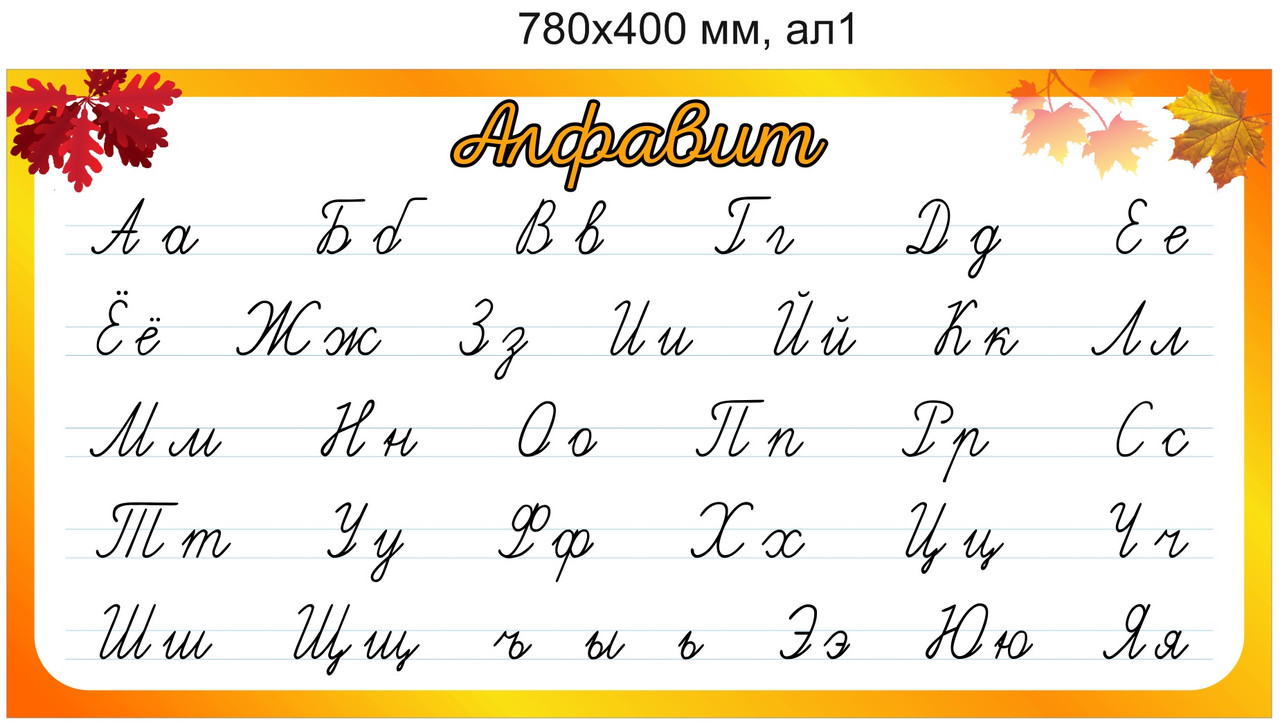 780х400 мм, ал1
Алфавит
А а Б б В в Г г Д д Е е
Ё ё Ж ж З з И и Й й К к Л л
М м Н н О о П п Р р С с
Т т У у Ф ф Х х Ц ц Ч ч
Ш ш Щ щ ъ ы ь Э э Ю ю Я я